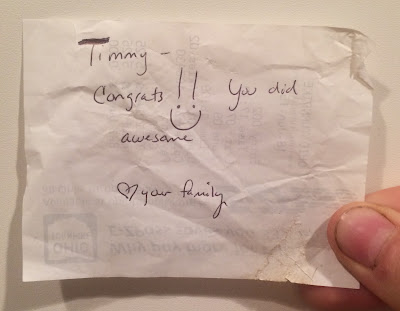 Timmy -
Congrats!! You did
awesome
♡ your family